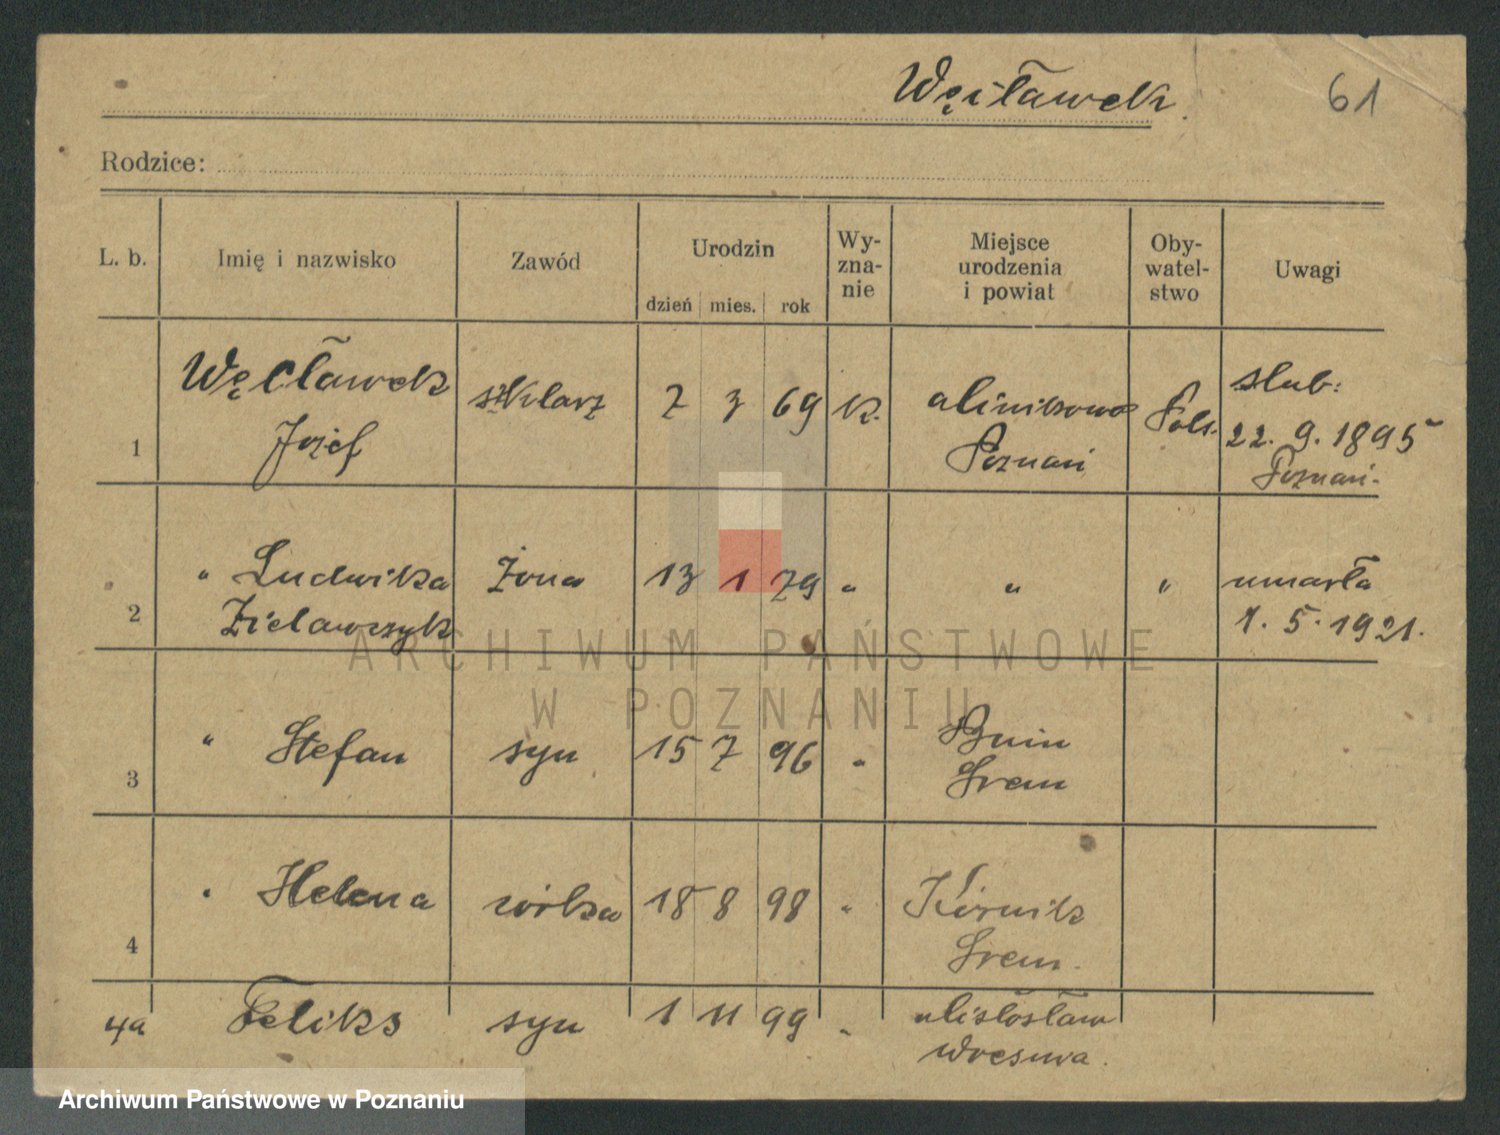 Węcławek
61
Rodzice:
L. b. Imię i nazwisko Zawód Urodzin dzień mies. rok Wy-zna-nie Miejsce urodzenia i powiat Oby-watel-stwo Uwagi
1 Węcławek Józef szklarz 7 3 69 k. Minikowo Poznań Pols. slub: 22. 9. 1895 Poznań.
2 " Ludwika Zielawczyk żona 13 1 79 " " " umarła 1. 5. 1921.
3 " Stefan syn 15 7 96 " Bnin Srem
4 " Helena córka 18 8 98 " Kórnik Srem.
4a Feliks syn 1 11 99 " Miłosław Wresnia.
ARCHIWUM PAŃSTWOWE
W POZNANIU
Archiwum Państwowe w Poznaniu